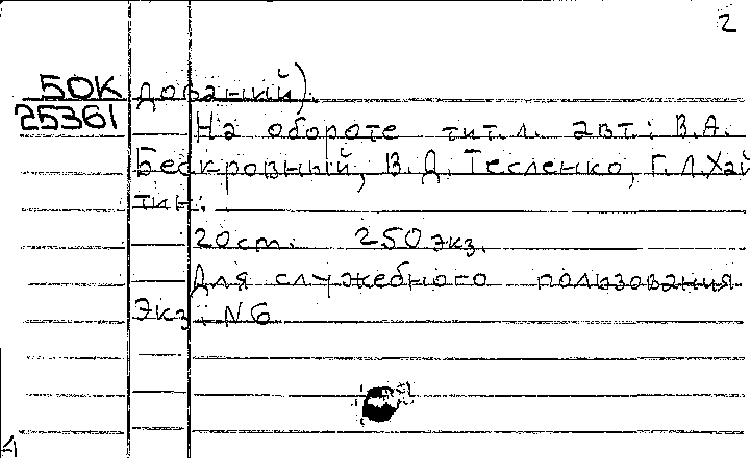 2
50К дований).
25361
На обороте тит. л. авт.: В.А.
Бескровный, В.Д. Тесленко, Г.Л.Хай
тин.
20см. 250 экз.
Для служебного пользования
Экз: N6